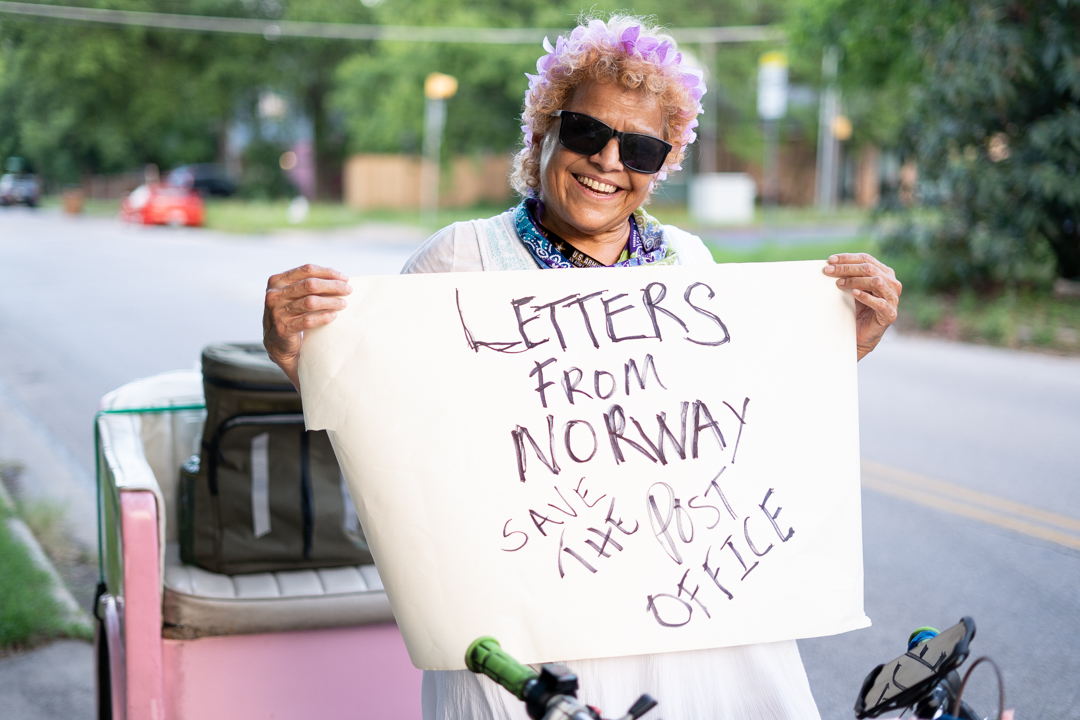 LETTERS
FROM
NORWAY
SAVE
THE POST
OFFICE
U.S. ARMY